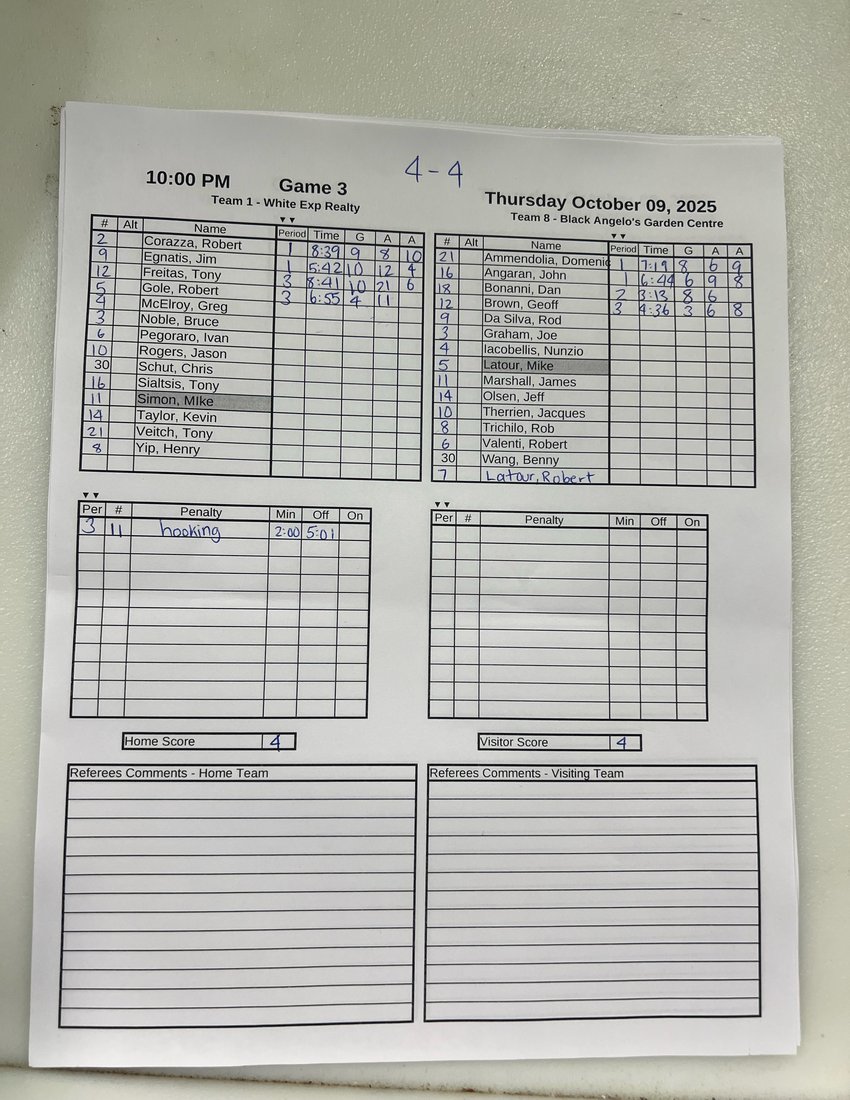 4-4
10:00 PM Game 3 Thursday October 09, 2025
Team 1 - White Exp Realty
# Alt Name Period Time G A A
2 Corazza, Robert 1 8:39 9 8 10
9 Egnatis, Jim 1 5:42 10 12 4
12 Freitas, Tony 3 8:41 10 21 6
5 Gole, Robert 3 6:55 4 11
4 McElroy, Greg
3 Noble, Bruce
6 Pegoraro, Ivan
10 Rogers, Jason
30 Schut, Chris
16 Sialtsis, Tony
11 Simon, MIke
14 Taylor, Kevin
21 Veitch, Tony
8 Yip, Henry
Team 8 - Black Angelo's Garden Centre
# Alt Name Period Time G A A
21 Ammendolia, Domenic 1 7:19 8 6 9
16 Angaran, John 1 6:44 6 9 8
18 Bonanni, Dan 2 3:13 8 6
12 Brown, Geoff 3 4:36 3 6 8
9 Da Silva, Rod
3 Graham, Joe
4 Iacobellis, Nunzio
5 Latour, Mike
11 Marshall, James
14 Olsen, Jeff
10 Therrien, Jacques
8 Trichilo, Rob
6 Valenti, Robert
30 Wang, Benny
7 Latour, Robert
Per # Penalty Min Off On
3 11 hooking 2:00 5:01
Per # Penalty Min Off On
Home Score 4
Visitor Score 4
Referees Comments - Home Team
Referees Comments - Visiting Team